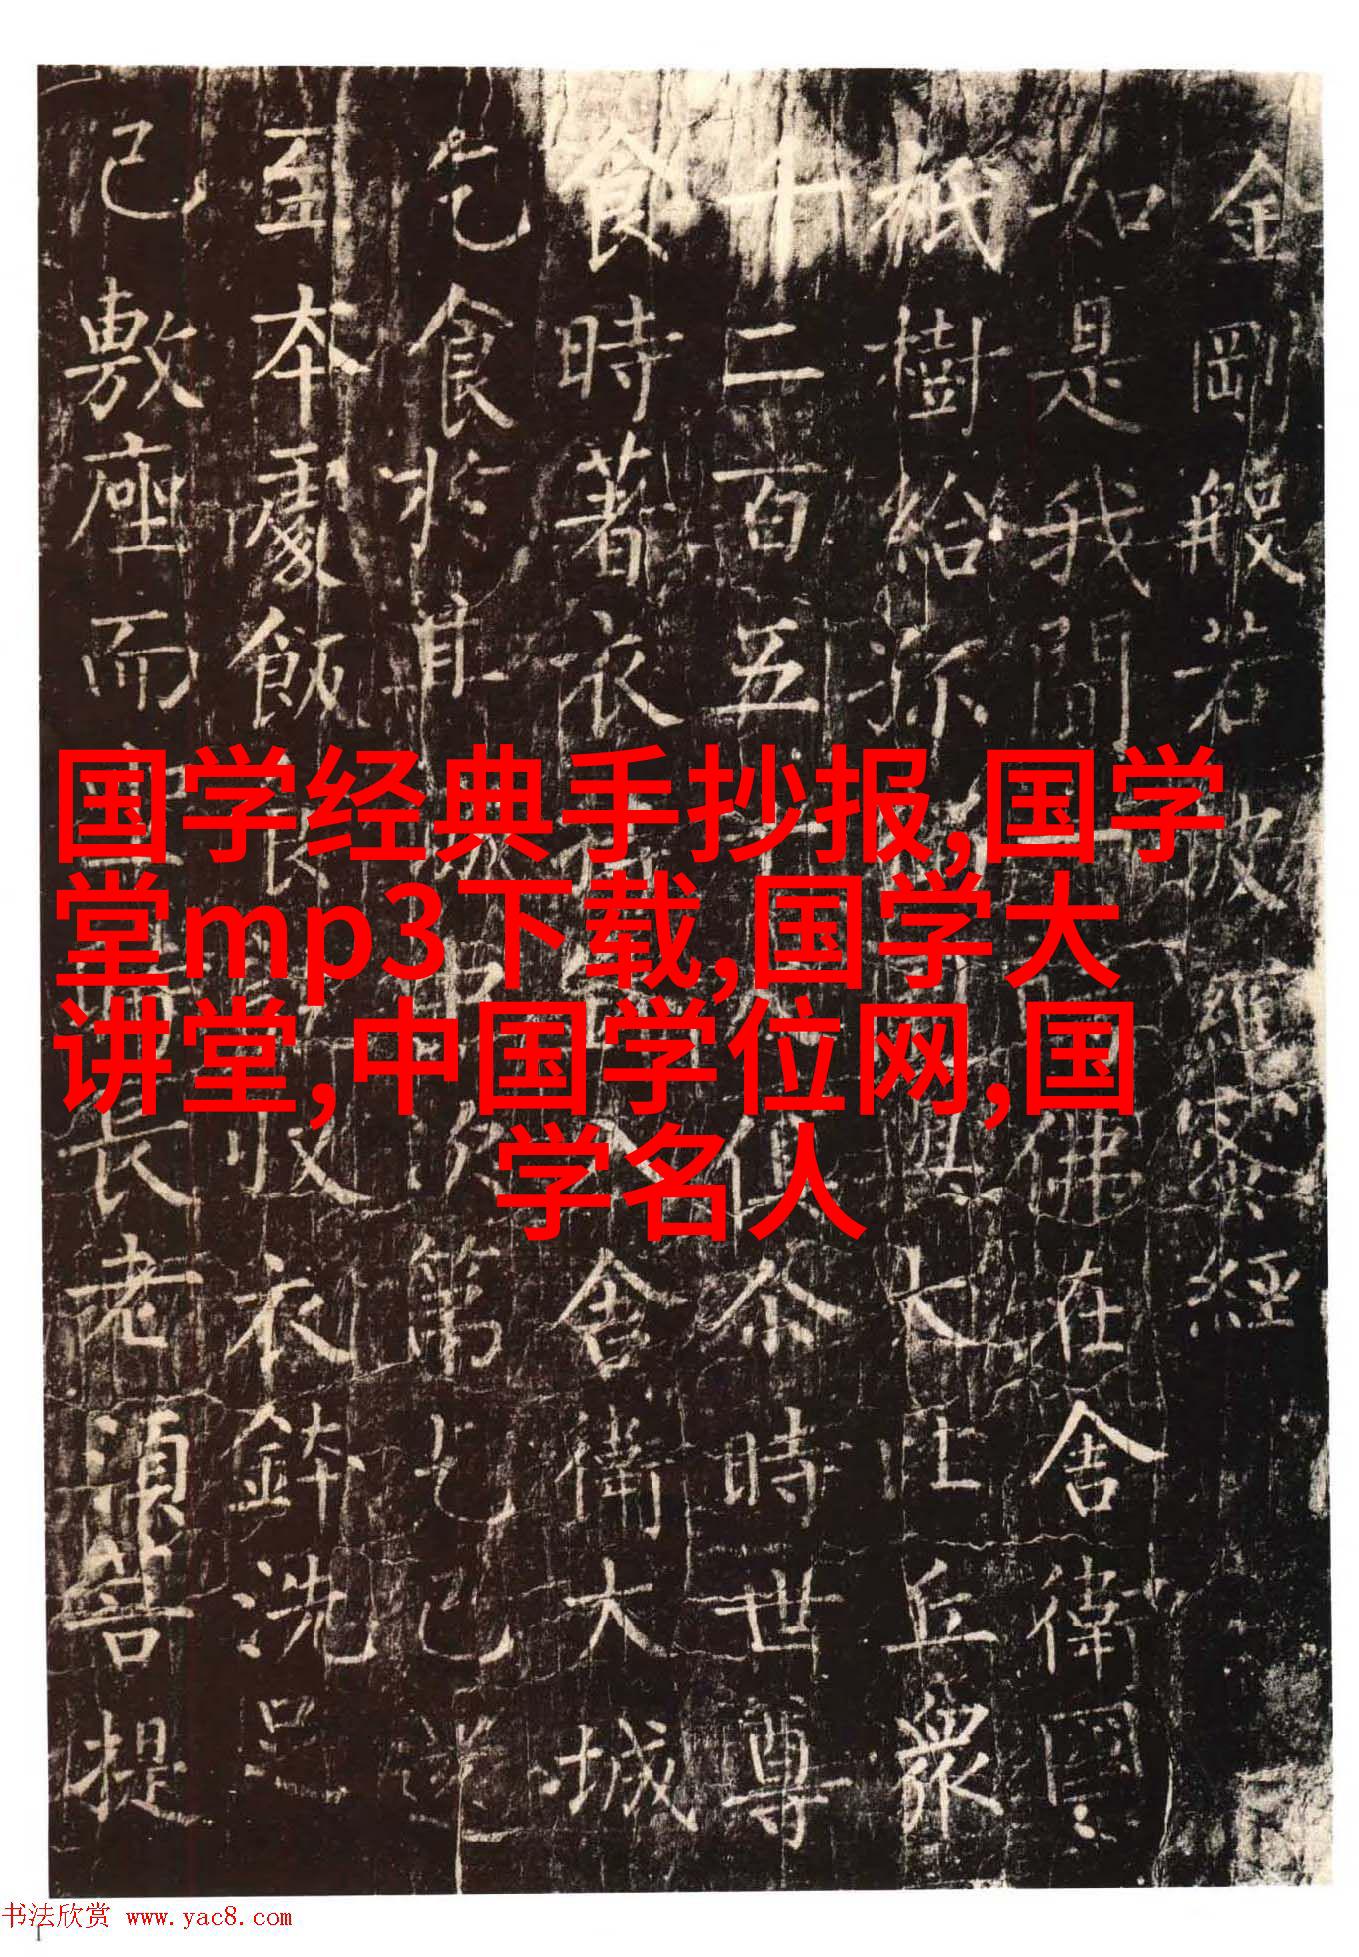 金剛般若波羅蜜經
如是我聞一佛在舍衛國
祇樹給孤大比丘眾
千二百五十人俱尒時世尊
食時著衣持入舍衛大城
乞食於其城中次第乞已還
至本處飯食收衣鉢洗足
已敷座而坐時長老須菩提
国学经典手抄报,国学
堂mp3下载,国学大
讲堂,中国学位网,国
学名人
书法欣赏 www.yac8.com